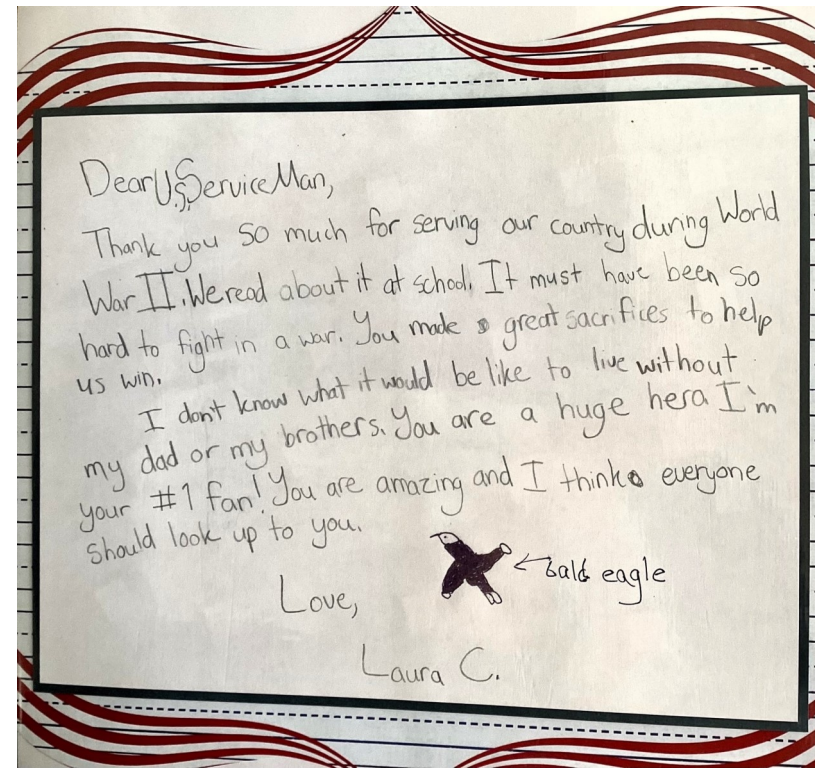 Dear U.S. Service Man,
Thank you so much for serving our country during World
War II. We read about it at school. It must have been so
hard to fight in a war. You made great sacrifices to help
us win.
I don't know what it would be like to live without
my dad or my brothers. You are a huge hero. I'm
your #1 fan! You are amazing and I think everyone
should look up to you.
bald eagle
Love,
Laura C.